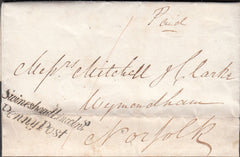 Paid
Messrs Mitchell & Clarke
Wymondham
Norfolk
Penny Post